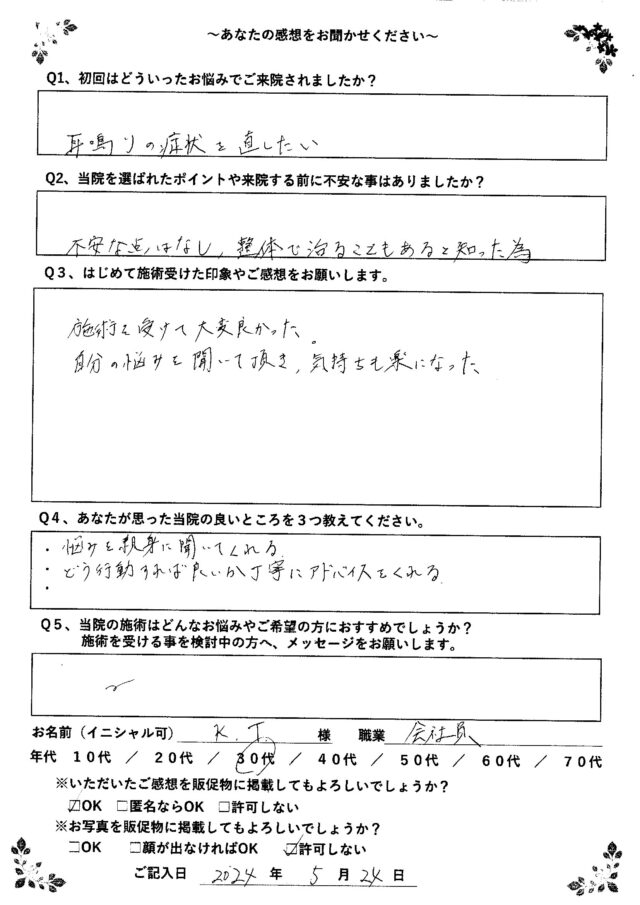 ~あなたの感想をお聞かせください~
Q1、初回はどういったお悩みでご来院されましたか?
耳鳴りの症状を直したい
Q2、当院を選ばれたポイントや来院する前に不安な事はありましたか?
不安な点はなし,整体で治ることもあると知った為
Q3、はじめて施術受けた印象やご感想をお願いします。
施術を受けて大変良かった。
自分の悩みを聞いて頂き,気持ちも楽になった
Q4、あなたが思った当院の良いところを3つ教えてください。
・悩みを親身に聞いてくれる
・どう行動すれば良いか丁寧にアドバイスをくれる
・
Q5、当院の施術はどんなお悩みやご希望の方におすすめでしょうか?
施術を受ける事を検討中の方へ、メッセージをお願いします。
お名前(イニシャル可) K. I. 様 職業 会社員
年代 10代 / 20代 / 30代 / 40代 / 50代 / 60代 / 70代
※いただいたご感想を販促物に掲載してもよろしいでしょうか?
☑OK □匿名ならOK □許可しない
※お写真を販促物に掲載してもよろしいでしょうか?
□OK □顔が出なければOK ☑許可しない
ご記入日 2024 年 5 月 24 日